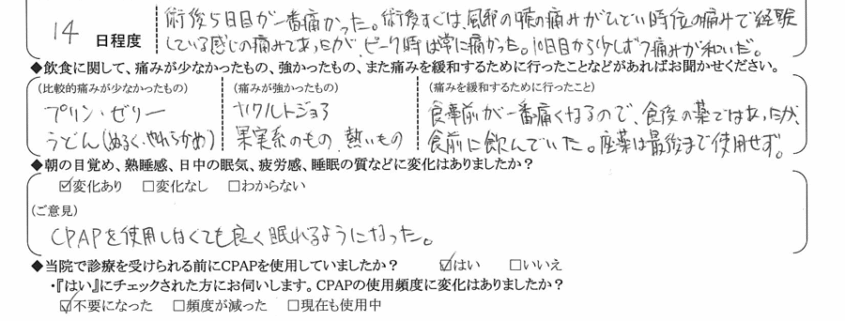 術後5日目が一番痛かった。術後すぐは、風邪の喉の痛みがひどい時位の痛みで経験
14 日程度 している感じの痛みであったが、ピーク時は常に痛かった。10日目から少しずつ痛みが和いだ。
◆飲食に関して、痛みが少なかったもの、強かったもの、また痛みを緩和するために行ったことなどがあればお聞かせください。
(比較的痛みが少なかったもの) (痛みが強かったもの) (痛みを緩和するために行ったこと)
プリン・ゼリー ヤクルトジョア 食事前が一番痛くなるので、食後の薬ではあったが、
うどん(ぬるく・やわらかめ) 果実系のもの 熱いもの 食前に飲んでいた。座薬は最後まで使用せず。
◆朝の目覚め、熟睡感、日中の眠気、疲労感、睡眠の質などに変化はありましたか?
☑変化あり □変化なし □わからない
(ご意見)
CPAPを使用しなくても良く眠れるようになった。
◆当院で診療を受けられる前にCPAPを使用していましたか? ☑はい □いいえ
・『はい』にチェックされた方にお伺いします。CPAPの使用頻度に変化はありましたか?
☑不要になった □頻度が減った □現在も使用中